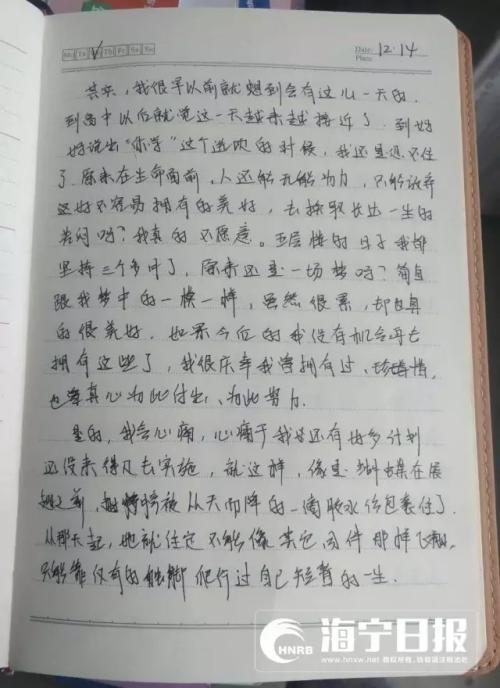 Mo Tu We Th Fr Sa Su
Date: 12.14
Place:
其实,我很早以前就想到会有这么一天的,
到高中以后就觉这一天越来越接近了。到好
好说出“休学”这个选项的时候,我还是忍不住
了。原来在生命面前,人这般无能为力,不能放弃
这好不容易拥有的美好,去换取长达一生的
苦闷吗?我真的不愿意。五层楼的日子我都
坚持三个多月了,原来还是一场梦吗?简直
跟我梦中的一模一样,虽然很累,却也真
的很美好。如果今后的我没有机会再去
拥有这些了,我很庆幸我曾拥有过、珍惜惜,
也曾真心为此付出,为此努力.
是的,我会心痛,心痛于我还有好多计划
还没来得及去实施,就这样,像是蝴蝶在展
翅之前,翅膀被从天而降的一滴胶水给包裹住了.
从那天起,她就注定不能像其它同伴那样飞翔,
只能靠仅有的脚爬行过自己短暂的一生.
HNRB
海宁日报
www.hnxw.net 版权所有,